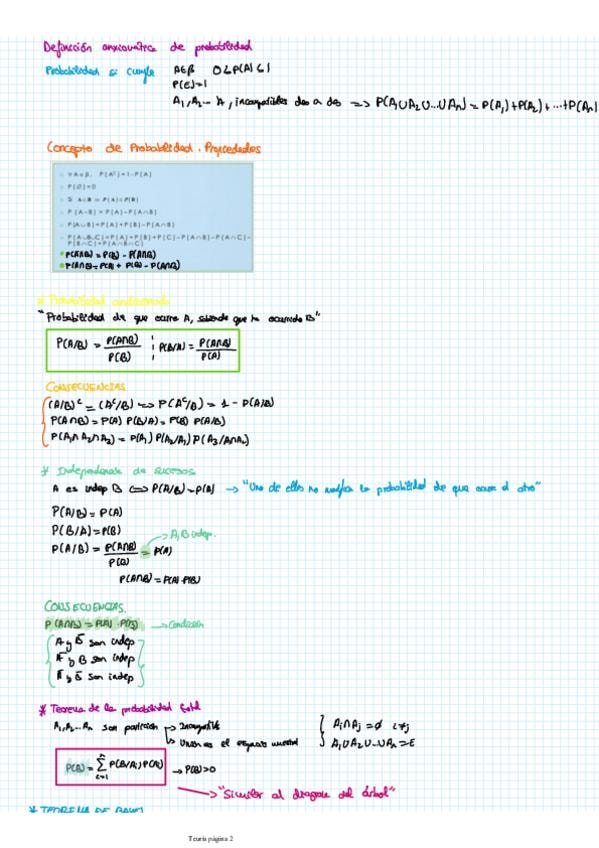 Definición axiomática de probabilidad
Probabilidad si cumple A∈β 0≤P(A)≤1
P(E)=1
A₁,A₂... A, incompatibles dos a dos => P(A₁∪A₂∪...∪Aₙ)=P(A₁)+P(A₂)+...+P(Aₙ)
Concepto de Probabilidad. Propiedades
∀A∈β, P(Aᶜ)=1-P(A)
P(Ø)=0
Si A⊂B ⇒ P(A)≤P(B)
P(A-B) = P(A)-P(A∩B)
P(A∪B)=P(A)+P(B)-P(A∩B)
P(A∪B∪C)=P(A)+P(B)+P(C)-P(A∩B)-P(A∩C)-
P(B∩C)+P(A∩B∩C)
P(A∩B) = P(A) + P(B) - P(A∩B)
* Probabilidad condicionada
"Probabilidad de que ocurra A, sabiendo que ha ocurrido B"
P(A/B) = P(A∩B)/P(B) ; P(B/A) = P(A∩B)/P(A)
CONSECUENCIAS
(A/B)ᶜ = (Aᶜ/B) => P(Aᶜ/B) = 1 - P(A/B)
P(A∩B) = P(A) P(B/A) = P(B) P(A/B)
P(A₁∩A₂∩A₃) = P(A₁) P(A₂/A₁) P(A₃/A₁∩A₂)
* Independencia de sucesos
A es indep B <=> P(A/B) = P(A) → "Uno de ellos no modifica la probabilidad de que ocurra el otro"
P(A/B) = P(A)
P(B/A) = P(B)
→ A,B indep.
P(A/B) = P(A∩B)/P(B) = P(A)
P(A∩B) = P(A)·P(B)
CONSECUENCIAS.
P(A∩B) = P(A)·P(B) → Condición
A y B̅ son indep
A̅ y B son indep
A̅ y B̅ son indep
* Teorema de la probabilidad total
A₁,A₂...Aₙ son partición → Incompatible Aᵢ∩Aⱼ=Ø i≠j
→ Unión es el espacio muestral A₁∪A₂∪...∪Aₙ=E
P(B) = Σ P(B/Aᵢ)P(Aᵢ) n i=1 → P(B)>0
→ "Similar al diagrama del árbol"
* TEOREMA DE BAYES
Teoría página 2